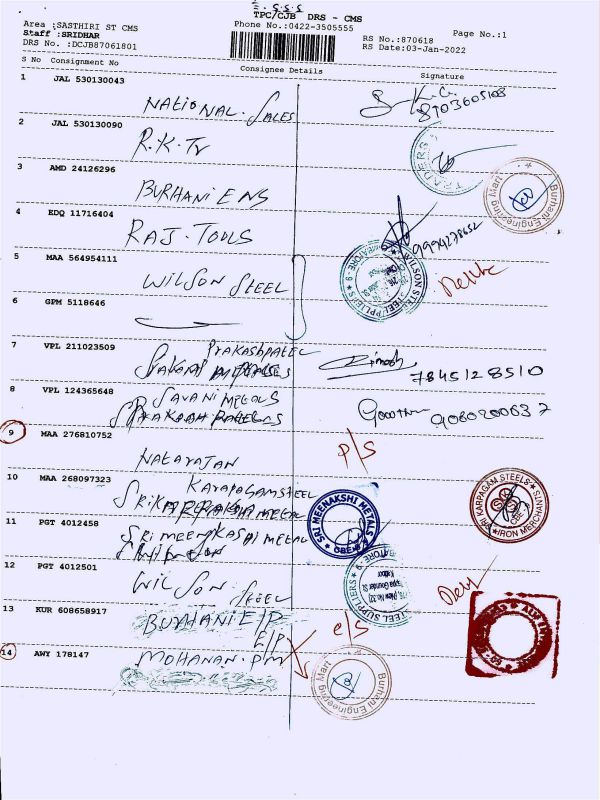 TPC/CJB DRS - CMS
Area :SASTHIRI ST CMS
Phone No.:0422-3505555
Page No.:1
Staff :SRIDHAR
RS No.:870618
DRS No. :DCJB87061801
RS Date:03-Jan-2022
S No Consignment No
Consignee Details
Signature
1 JAL 530130043
NATIONAL. SALES
8903605108
2 JAL 530130090
R.K. Tr
TRADERS
3 AMD 24126296
BURHANI ENS
Burhani Engineering Mart
4 EDQ 11716404
RAJ. TOOLS
9994278652
5 MAA 564954111
WILSON STEEL
6 GPM 5118646
7 VPL 211023509
Prakash patel
7845128510
8 VPL 124365648
SAVANI METALS
9
MAA 276810752
NATARAJAN
P/S
10 MAA 268097323
KARAPAGAM STEEL
SRI KARPAGAM STEELS
IRON MERCHANTS
CBE-9
11 PGT 4012458
SRI MEENAKSHI METAL
SRI MEENAKSHI METALS
CBE-9
12 PGT 4012501
WILSON. STEEL
STEEL SUPPLIERS
13 KUR 608658917
BURHANI E/P
E/P
e/S
14 AWY 178147
MOHANAN. P M
Burhani Engineering Mart